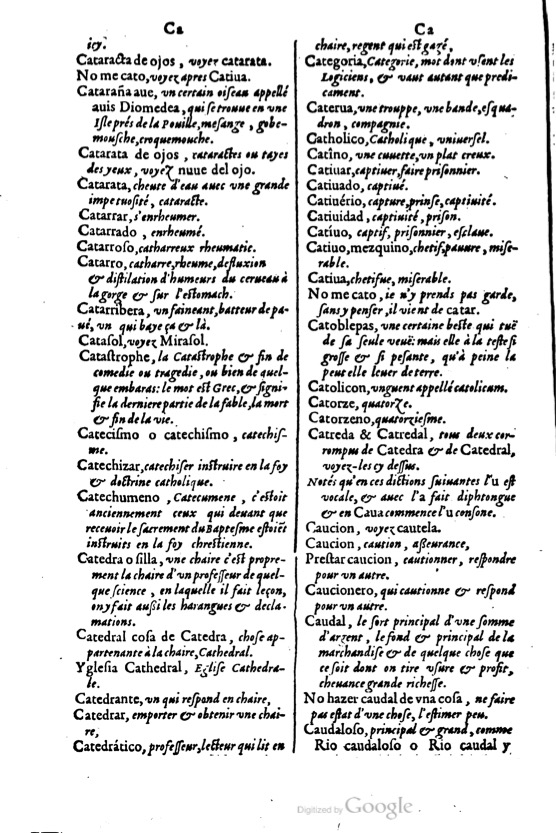 Ca
icy.
Cataracta de ojos, voyer catarata.
No me cato, voyez apres Catiua.
Cataraña aue, vn certain oiseau appellé
auis Diomedea, qui se trouue en vne
Isle prés de la Pouille, mesange, gobe-
mousche, croquemouche.
Catarata de ojos, cataractes ou tayes
des yeux, voyez nuue del ojo.
Catarata, cheute d'eau auec vne grande
impetuosité, cataracte.
Catarrar, s'enrheumer.
Catarrado, enrheumé.
Catarroso, catharreux rheumatic.
Catarro, catharre, rheume, defluxion
& distilation d'humeurs du cerueau à
la gorge & sur l'estomach.
Catarribera, vn faineant, batteur de pa-
ué, vn qui baye çà & là.
Catasol, voyez Mirasol.
Catastrophe, la Catastrophe & fin de
comedie ou tragedie, ou bien de quel-
que embaras: le mot est Grec, & signi-
fie la derniere partie de la fable, la mort
& fin de la vie.
Catecismo o catechismo, catechis-
me.
Catechizar, catechiser instruire en la foy
& doctrine catholique.
Catechumeno, Catecumene, c'estoit
anciennement ceux qui deuant que
receuoir le sacrement du Baptesme estoiẽt
instruits en la foy chrestienne.
Catedra o silla, vne chaire c'est propre-
ment la chaire d'vn professeur de quel-
que science, en laquelle il fait leçon,
on y fait aussi les harangues & decla-
mations.
Catedral cosa de Catedra, chose ap-
partenante à la chaire, Cathedral.
Yglesia Cathedral, Eglise Cathedra-
le.
Catedrante, vn qui respond en chaire,
Catedrar, emporter & obtenir vne chai-
re,
Catedrático, professeur, lecteur qui lit en
Ca
chaire, regent qui est gagé,
Categoria, Categorie, mot dont vsent les
Logiciens, & vaut autant que predi-
cament.
Caterua, vne trouppe, vne bande, esqua-
dron, compagnie.
Catholico, Catholique, vniuersel.
Catîno, vne cuuette, vn plat creux.
Catiuar, captiuer, faire prisonnier.
Catiuado, captiué.
Catiuério, capture, prinse, captiuité.
Catiuidad, captiuité, prison.
Catíuo, captif, prisonnier, esclaue.
Catiuo, mezquino, chetif, pauure, mise-
rable.
Catiua, chetifue, miserable.
No me cato, ie n'y prends pas garde,
sans y penser, il vient de catar.
Catoblepas, vne certaine beste qui tuë
de sa seule veuë: mais elle à la teste si
grosse & si pesante, qu'à peine la
peut elle leuer de terre.
Catolicon, vnguent appellé catolicum.
Catorze, quatorze.
Catorzeno, quatorziesme.
Catreda & Catredal, tous deux cor-
rompus de Catedra & de Catedral,
voyez-les cy dessus.
Notés qu'en ces dictions suiuantes l'u est
vocale, & auec l'a fait diphtongue
& en Caua commence l'u consone.
Caucion, voyez cautela.
Caucion, caution, asseurance,
Prestar caucion, cautionner, respondre
pour vn autre.
Caucionero, qui cautionne & respond
pour vn autre.
Caudal, le sort principal d'vne somme
d'argent, le fond & principal de la
marchandise & de quelque chose que
ce soit dont on tire vsure & profit,
cheuance grande richesse.
No hazer caudal de vna cosa, ne faire
pas estat d'vne chose, l'estimer peu.
Caudaloso, principal & grand, comme
Rio caudaloso o Rio caudal y
Digitized by Google